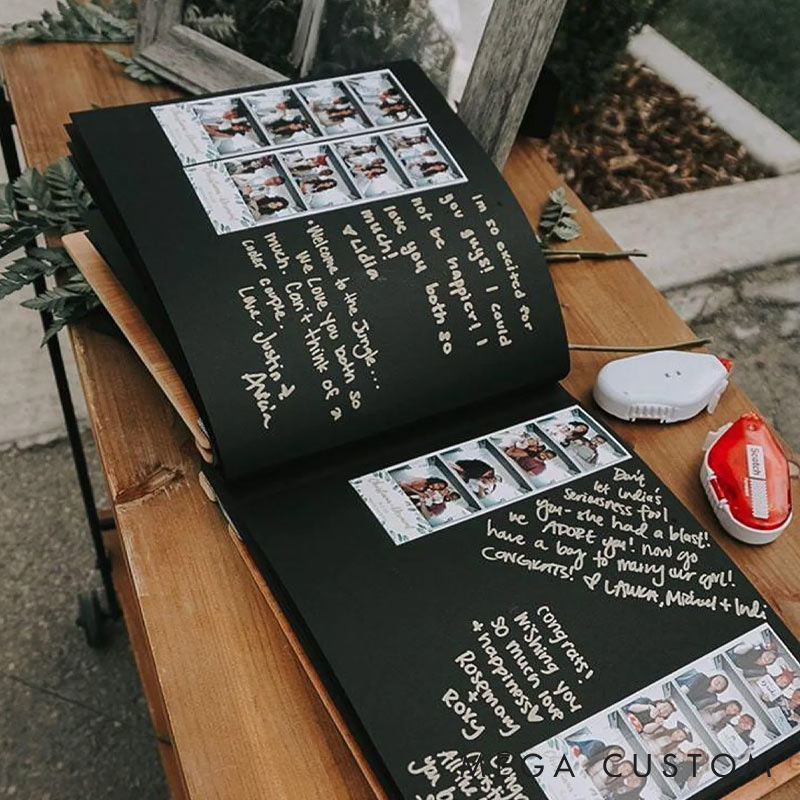 Im so excited for
you guys! I could
not be happier! I
love you both so
much!
♥ Lidia
"Welcome to the Jungle...
We Love you both so
much. Can't think of a
cooler couple.
Love- Justin &
Don't
let India's
seriousness fool
you- she had a blast!
we ADORE you! now go
have a boy to marry our girl!
CONGRATS! & LAURA, Michael + Indi
Congrats!
Wishing you
so much love
+ happiness♥
Rosemary
+
Roxy
Congr
All the
you b
Scotch
MEGA CUSTOM